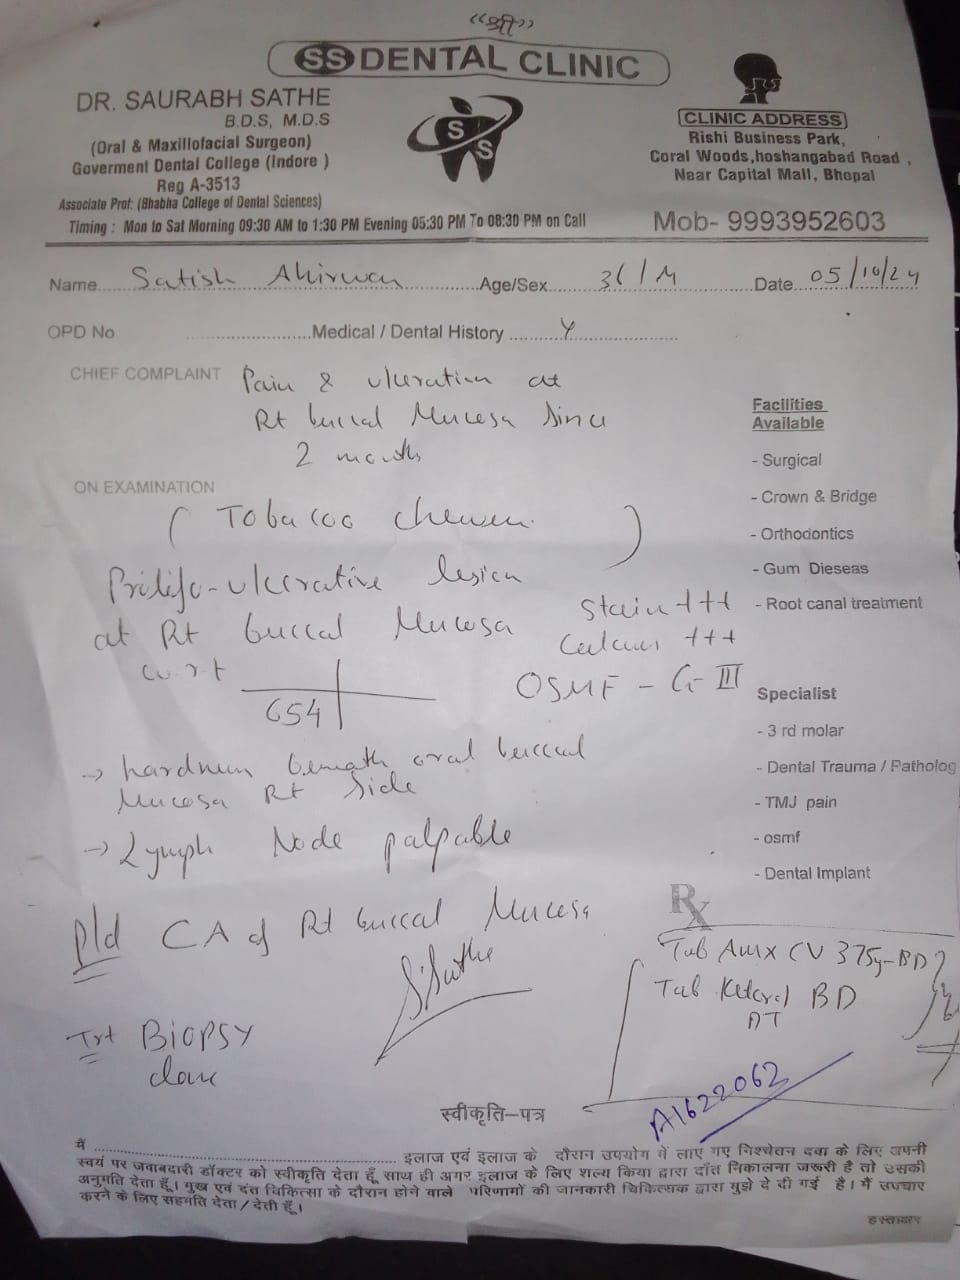 “श्री”
SS DENTAL CLINIC
DR. SAURABH SATHE
B.D.S, M.D.S
(Oral & Maxillofacial Surgeon)
Goverment Dental College (Indore )
Reg A-3513
Associate Prof: (Bhabha College of Dental Sciences)
Timing : Mon to Sat Morning 09:30 AM to 1:30 PM Evening 05:30 PM To 08:30 PM on Call
S
S
CLINIC ADDRESS
Rishi Business Park,
Coral Woods,hoshangabad Road ,
Near Capital Mall, Bhopal
Mob- 9993952603
Name Satish Ahirwar Age/Sex 36/M Date 05/10/24
OPD No Medical / Dental History
CHIEF COMPLAINT Pain & ulceration at
Rt buccal Mucosa Since
2 month
ON EXAMINATION
( Tobacco chewer )
Prolifo-ulcerative lesion
at Rt buccal Mucosa
w.r.t
654
Stain +++
Calculus +++
OSMF - G III
→ hardness beneath oral buccal
Mucosa Rt Side
→ Lymph Node palpable
P/d CA of Rt buccal Mucosa
S.Sathe
Trt BIOPSY
done
Facilities
Available
- Surgical
- Crown & Bridge
- Orthodontics
- Gum Dieseas
- Root canal treatment
Specialist
- 3 rd molar
- Dental Trauma / Patholog
- TMJ pain
- osmf
- Dental Implant
Rx
Tab Amx CV 375g-BD
Tab Ketorol BD
DT
A1622062
स्वीकृति–पत्र
मैं ........ इलाज एवं इलाज के दौरान उपयोग में लाए गए निश्चेतन दवा के लिए अपनी
स्वयं पर जवाबदारी डॉक्टर को स्वीकृति देता हूँ साथ ही अगर इलाज के लिए शल्य किया द्वारा दाँत निकालना जरूरी है तो उसकी
अनुमति देता हूँ। मुख एवं दंत चिकित्सा के दौरान होने वाले परिणामों की जानकारी चिकित्सक द्वारा मुझे दे दी गई है। मैं उपचार
करने के लिए सहमति देता / देती हूँ।
हस्ताक्षर